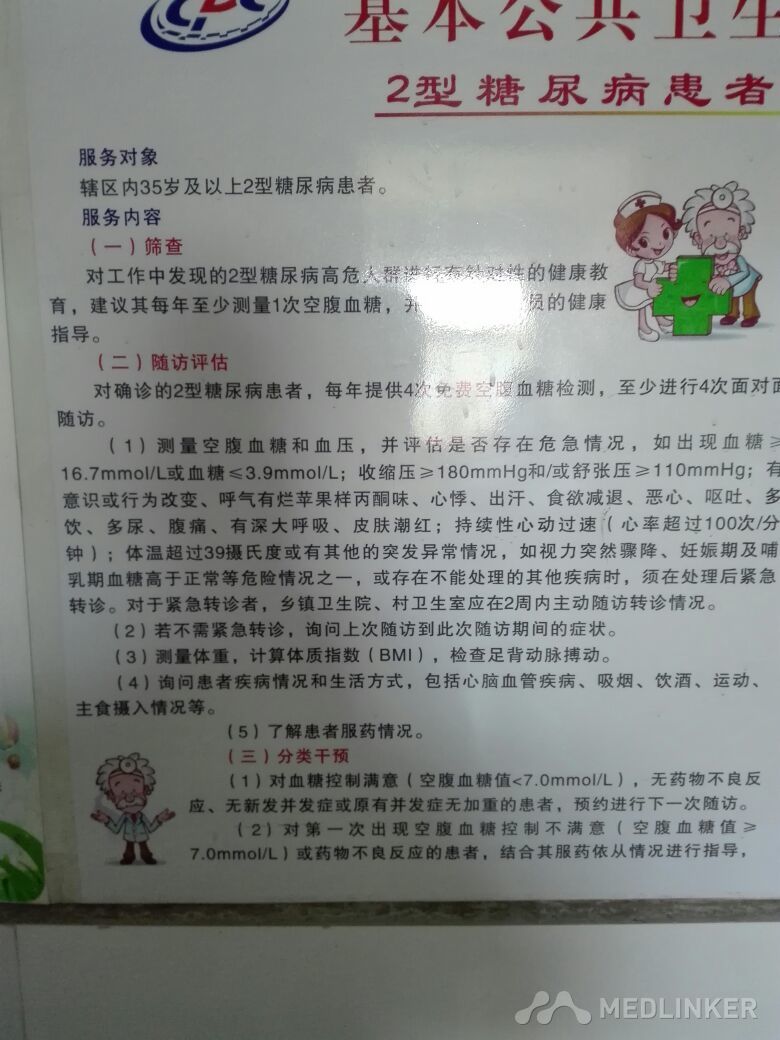 基本公共卫生
2型糖尿病患者
服务对象
辖区内35岁及以上2型糖尿病患者。
服务内容
（一）筛查
对工作中发现的2型糖尿病高危人群进行有针对性的健康教
育，建议其每年至少测量1次空腹血糖，并 员的健康
指导。
（二）随访评估
对确诊的2型糖尿病患者，每年提供4次免费空腹血糖检测，至少进行4次面对面
随访。
（1）测量空腹血糖和血压，并评估是否存在危急情况，如出现血糖≥
16.7mmol/L或血糖≤3.9mmol/L；收缩压≥180mmHg和/或舒张压≥110mmHg；有
意识或行为改变、呼气有烂苹果样丙酮味、心悸、出汗、食欲减退、恶心、呕吐、多
饮、多尿、腹痛、有深大呼吸、皮肤潮红；持续性心动过速（心率超过100次/分
钟）；体温超过39摄氏度或有其他的突发异常情况，如视力突然骤降、妊娠期及哺
乳期血糖高于正常等危险情况之一，或存在不能处理的其他疾病时，须在处理后紧急
转诊。对于紧急转诊者，乡镇卫生院、村卫生室应在2周内主动随访转诊情况。
（2）若不需紧急转诊，询问上次随访到此次随访期间的症状。
（3）测量体重，计算体质指数（BMI），检查足背动脉搏动。
（4）询问患者疾病情况和生活方式，包括心脑血管疾病、吸烟、饮酒、运动、
主食摄入情况等。
（5）了解患者服药情况。
（三）分类干预
（1）对血糖控制满意（空腹血糖值<7.0mmol/L），无药物不良反
应、无新发并发症或原有并发症无加重的患者，预约进行下一次随访。
（2）对第一次出现空腹血糖控制不满意（空腹血糖值≥
7.0mmol/L）或药物不良反应的患者，结合其服药依从情况进行指导，
MEDLINKER